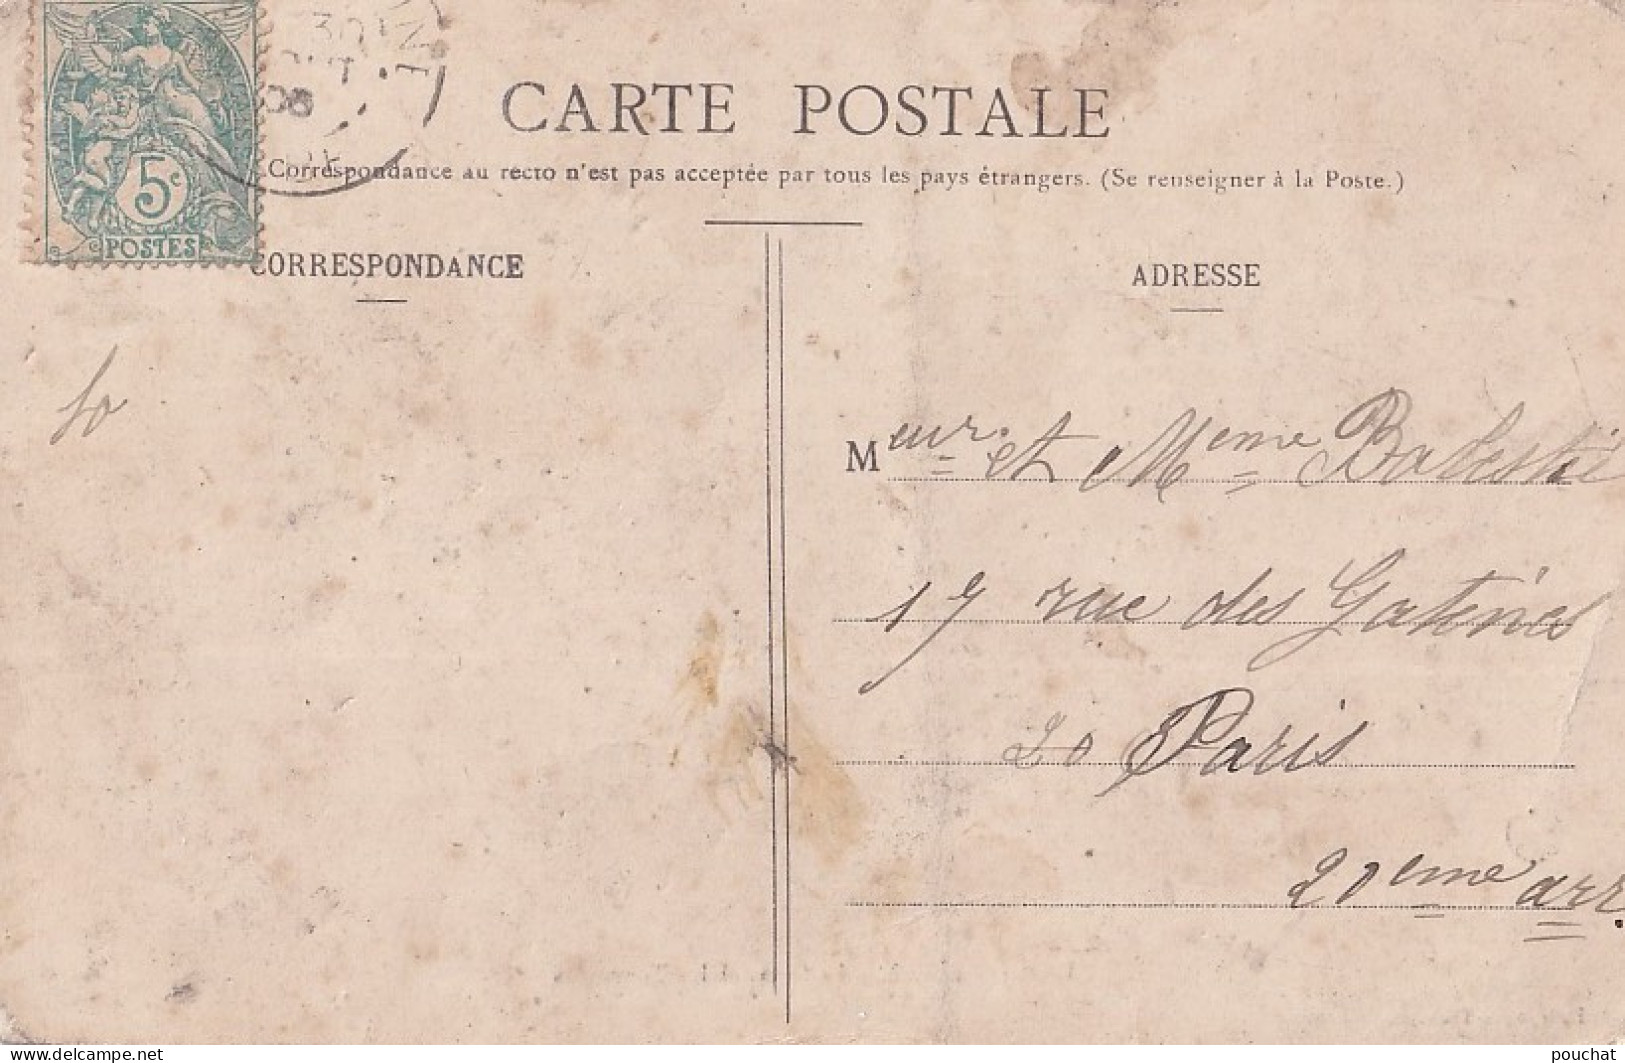 5c
POSTES
CARTE POSTALE
Correspondance au recto n'est pas acceptée par tous les pays étrangers. (Se renseigner à la Poste.)
CORRESPONDANCE
ADRESSE
10
Meur et Meme Balestié
17 rue des Gatines
20 Paris
20eme arr.
delcampe.net
pouchat